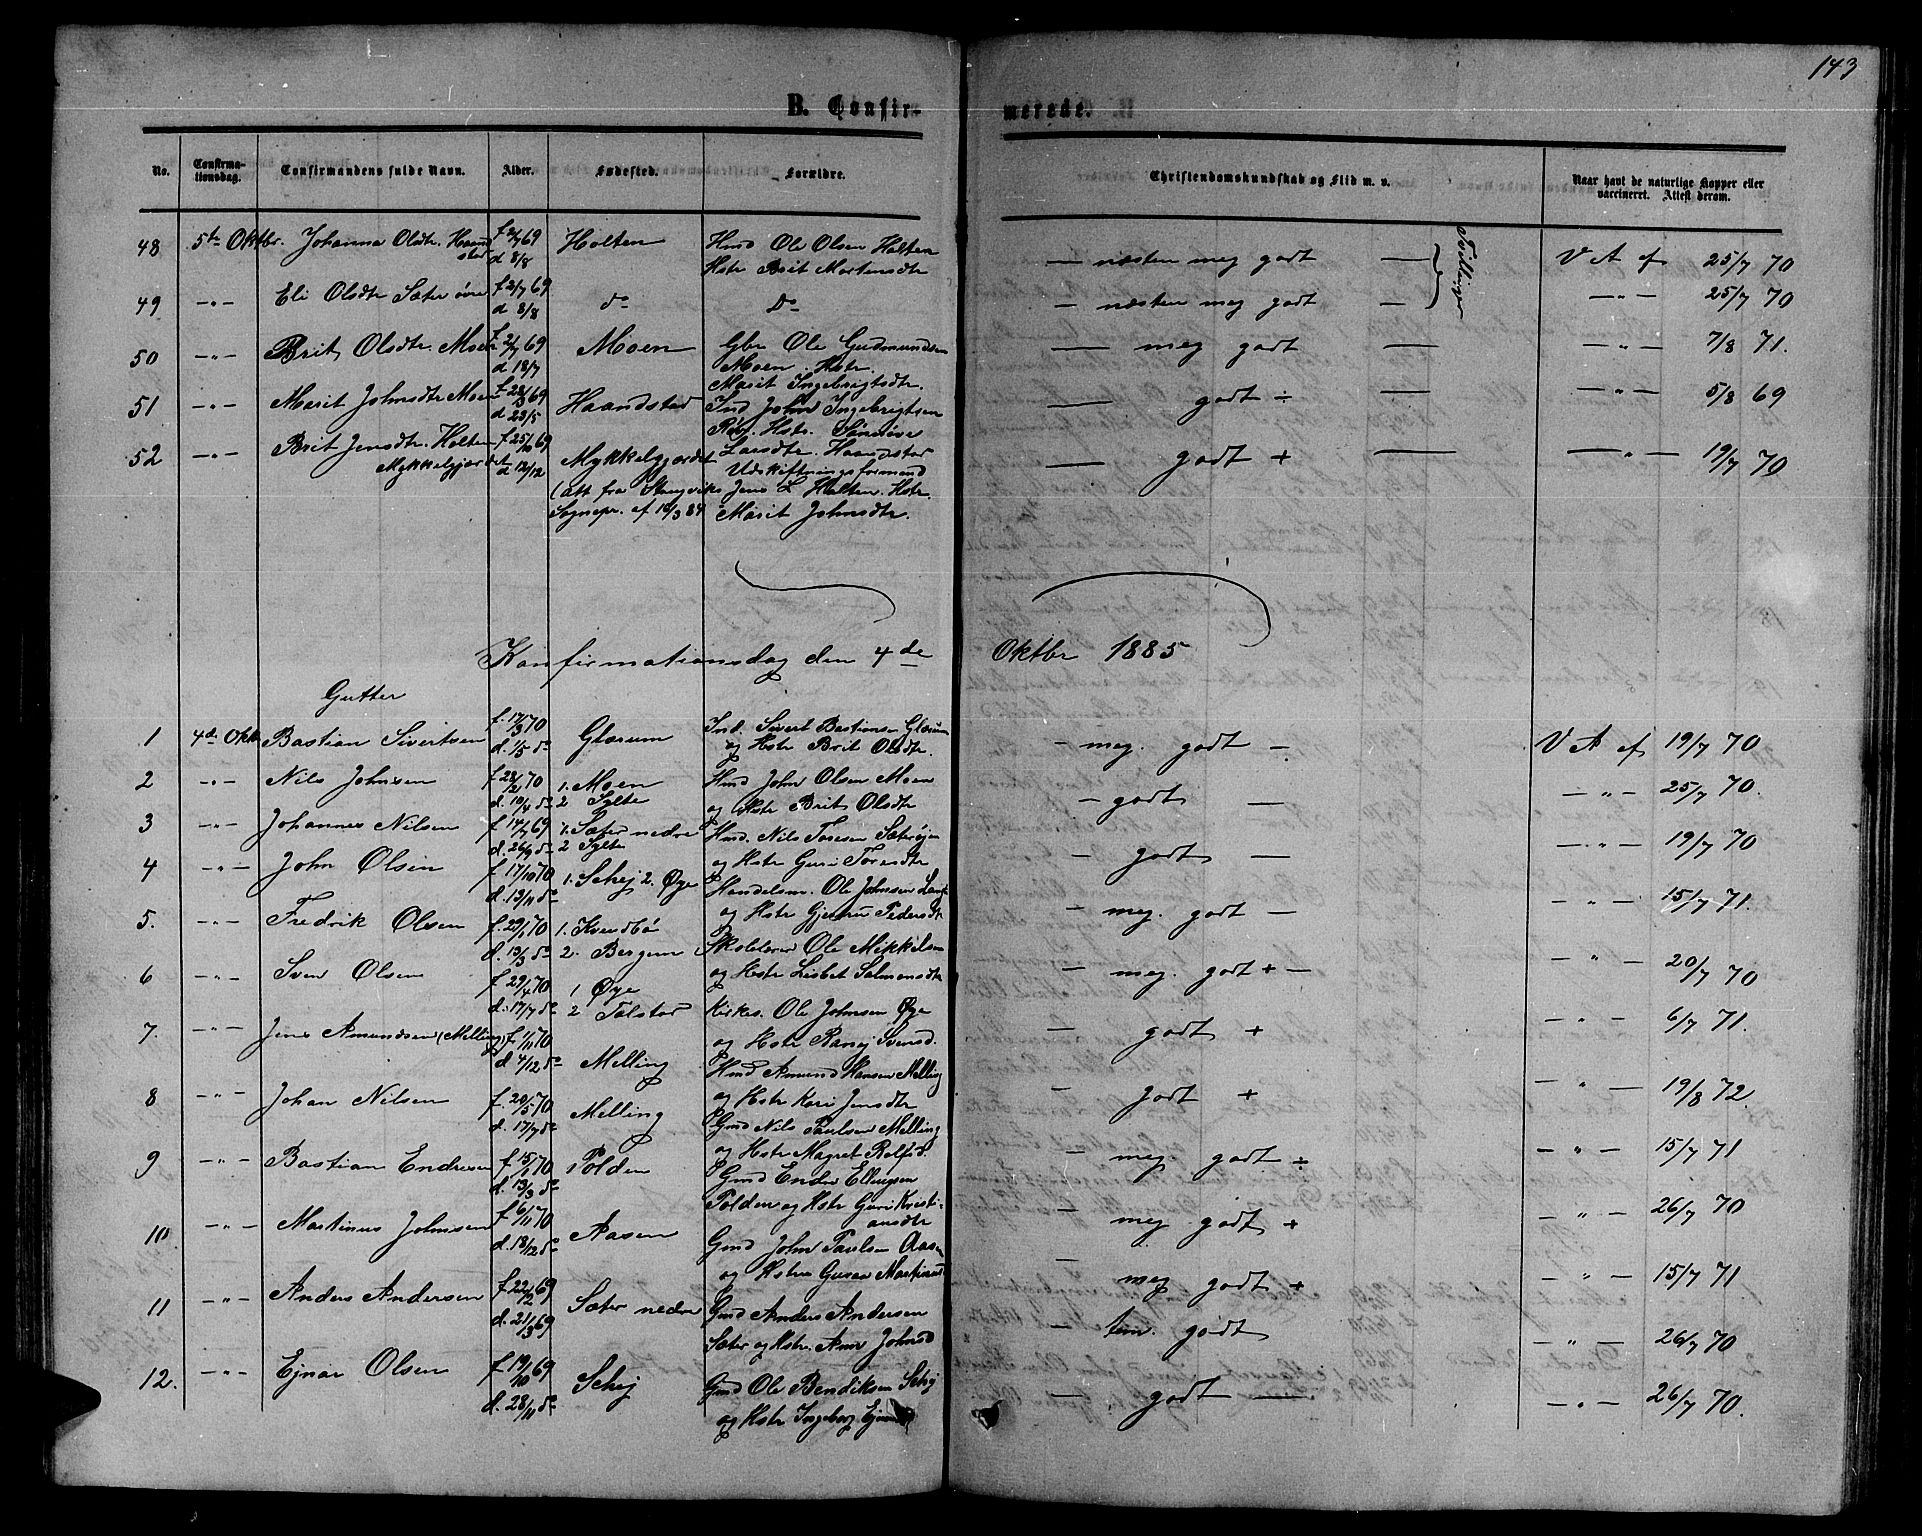 143
B. Confir-
merede.
No.
Confirma-
tionsdag.
Confirmandens fulde Navn.
Alder.
Fødested.
Forældre.
Christendomskundskab og Flid m. v.
Naar havt de naturlige Kopper eller
vaccineret. Attest derom.
48 5te Oktbr. Johanna Olsdtr. Haand
stad
f 2/7 69
d 8/8
Holten
Hmd Ole Olsen Holten
Hstr Brit Mortensdtr
— næsten meg godt —
Tvillinger
V A af 25/7 70
49 -"- Eli Olsdtr Sæter øvre
f 2/7 69
d 8/8
do
Do
— næsten meg godt —
—"— 25/7 70
50 -"- Brit Olsdtr. Moen
f 2/7 69
d 18/7
Moen
Gbr Ole Gudmundsen
Moen. Hstr.
Marit Ingebrigtsdtr.
— meg godt —
—"— 7/8 71.
51 -"- Marit Johnsdtr Moen
f 28/3 69
d 23/5
Haandstad
Ind John Ingebrigtsen
Røv. Hstr. Sindøve
Larsdtr. Haandstad
— godt ÷ —
—"— 5/8 69
52 -"- Brit Jensdtr. Holten
Mykkelgjærdet
f 25/10 69
d 12/12
Mykkelgjærdet
(Att fra Stangvik
Sognepr. af 10/3 84
Udskiftningsformand
Jens L Holten. Hstr.
Marit Johnsdtr.
— godt + —
—"— 19/7 70
Konfirmationsdag den 4de Oktbr 1885
Gutter
1 4de Oktb Bastian Sivertsen
f. 17/3 70
d. 1/5 do
Glærum
Ind. Sivert Bastiansen Glærum
og Hstr Brit Olsdtr.
- meg. godt -
V A af 19/7 70
2 -"- Nils Johnsen
f 28/2 70
d. 10/4 do
1. Moen
2 Sylte
Hmd John Olsen Moen
og Hstr Brit Olsdtr
- godt —
—"— 25/7 70.
3 -"- Johannes Nilsen
f 14/7 69
d. 26/9 do
1. Sæter nedre
2 Sylte
Hmd. Nils Toresen Sæterøien
og Hstr Guri Toresdtr
— godt —
—"— 19/7 70
4 -"- John Olsen
f 17/10 70
d. 13/11 do
1. Schej 2. Øye
Handelsm. Ole Johnsen
og Hstr Gjertru Pedersdtr
- meg. godt —
-"- 15/7 71.
5. -"- Fredrik Olsen
f. 29/1 70
d. 13/3 do
1. Kvendbø
2. Bergem
Skolelærer Ole Mikkelsen
og Hstr Lisbet Salmonsdtr
— meg. godt + —
—"— 20/7 70
6 -"- Sven Olsen
f 29/4 70
d. 17/7 do
1 Øye
2 Talstad
Kirkes. Ole Johnsen Øye
og Hstr Ranej Svensd.
— godt +
—"— 6/7 71.
7. -"- Jens Amundsen (Melling)
f 1/11 70
d 4/12 do
Melling
Hmd Amund Hansen Melling
og Hstr Kari Jensdtr
— godt +
—"— 19/8 72.
8 -"- Johan Nilsen
f. 20/5 70
d. 17/7 do
Melling
Gmd Nils Paulsen Melling
og Hstr Magret Rolfsd.
- meg. godt ÷
—"— 15/7 71
9 -"- Bastian Endresen
f 15/1 70
d. 13/3 do
Polden
Gmd Endre Ellingsen
Polden og Hstr Guri Kristi-
ansdtr
— meg godt +
—"— 26/7 70
10 -"- Martinus Johnsen
f 6/11 70
d. 18/12 do
Aasen
Gmd John Paulsen Aasen
og Hstr Guraa Martinusd.
— meg godt +
—"— 15/7 71
11 -"- Anders Andersen
f 22/2 69
d. 21/3 69
Sæter nedre
Gmd Anders Andersen
Sæter og Hstr. Ann Johnsd
— tem. godt
—"— 26/7 70
12. -"- Ejnar Olsen
f 19/10 69
d. 28/11 do
Schej
Gmd Ole Bendiksen Schej
og Hstr Ingeborg
— godt —
—"— 26/7 70.